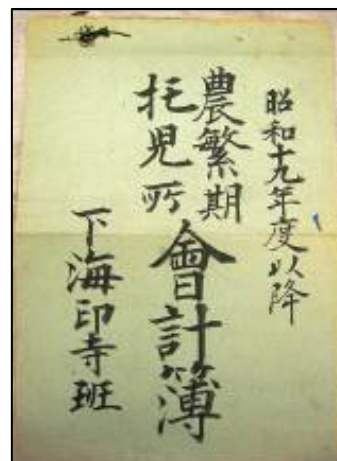 昭和十九年度以降
農繁期
托児所
會計簿
下海印寺班